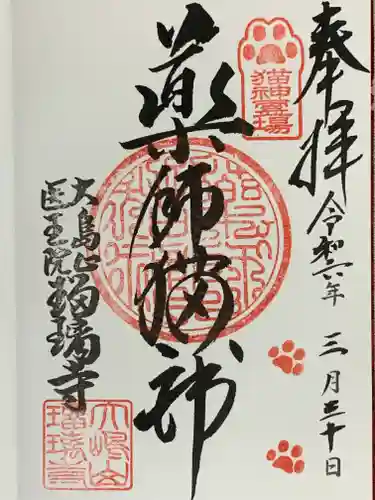 奉拝
令和六年
三月三十日
猫神霊場
薬師猫神
大嶋山
医王院
瑠璃寺
大嶋山
瑠璃寺